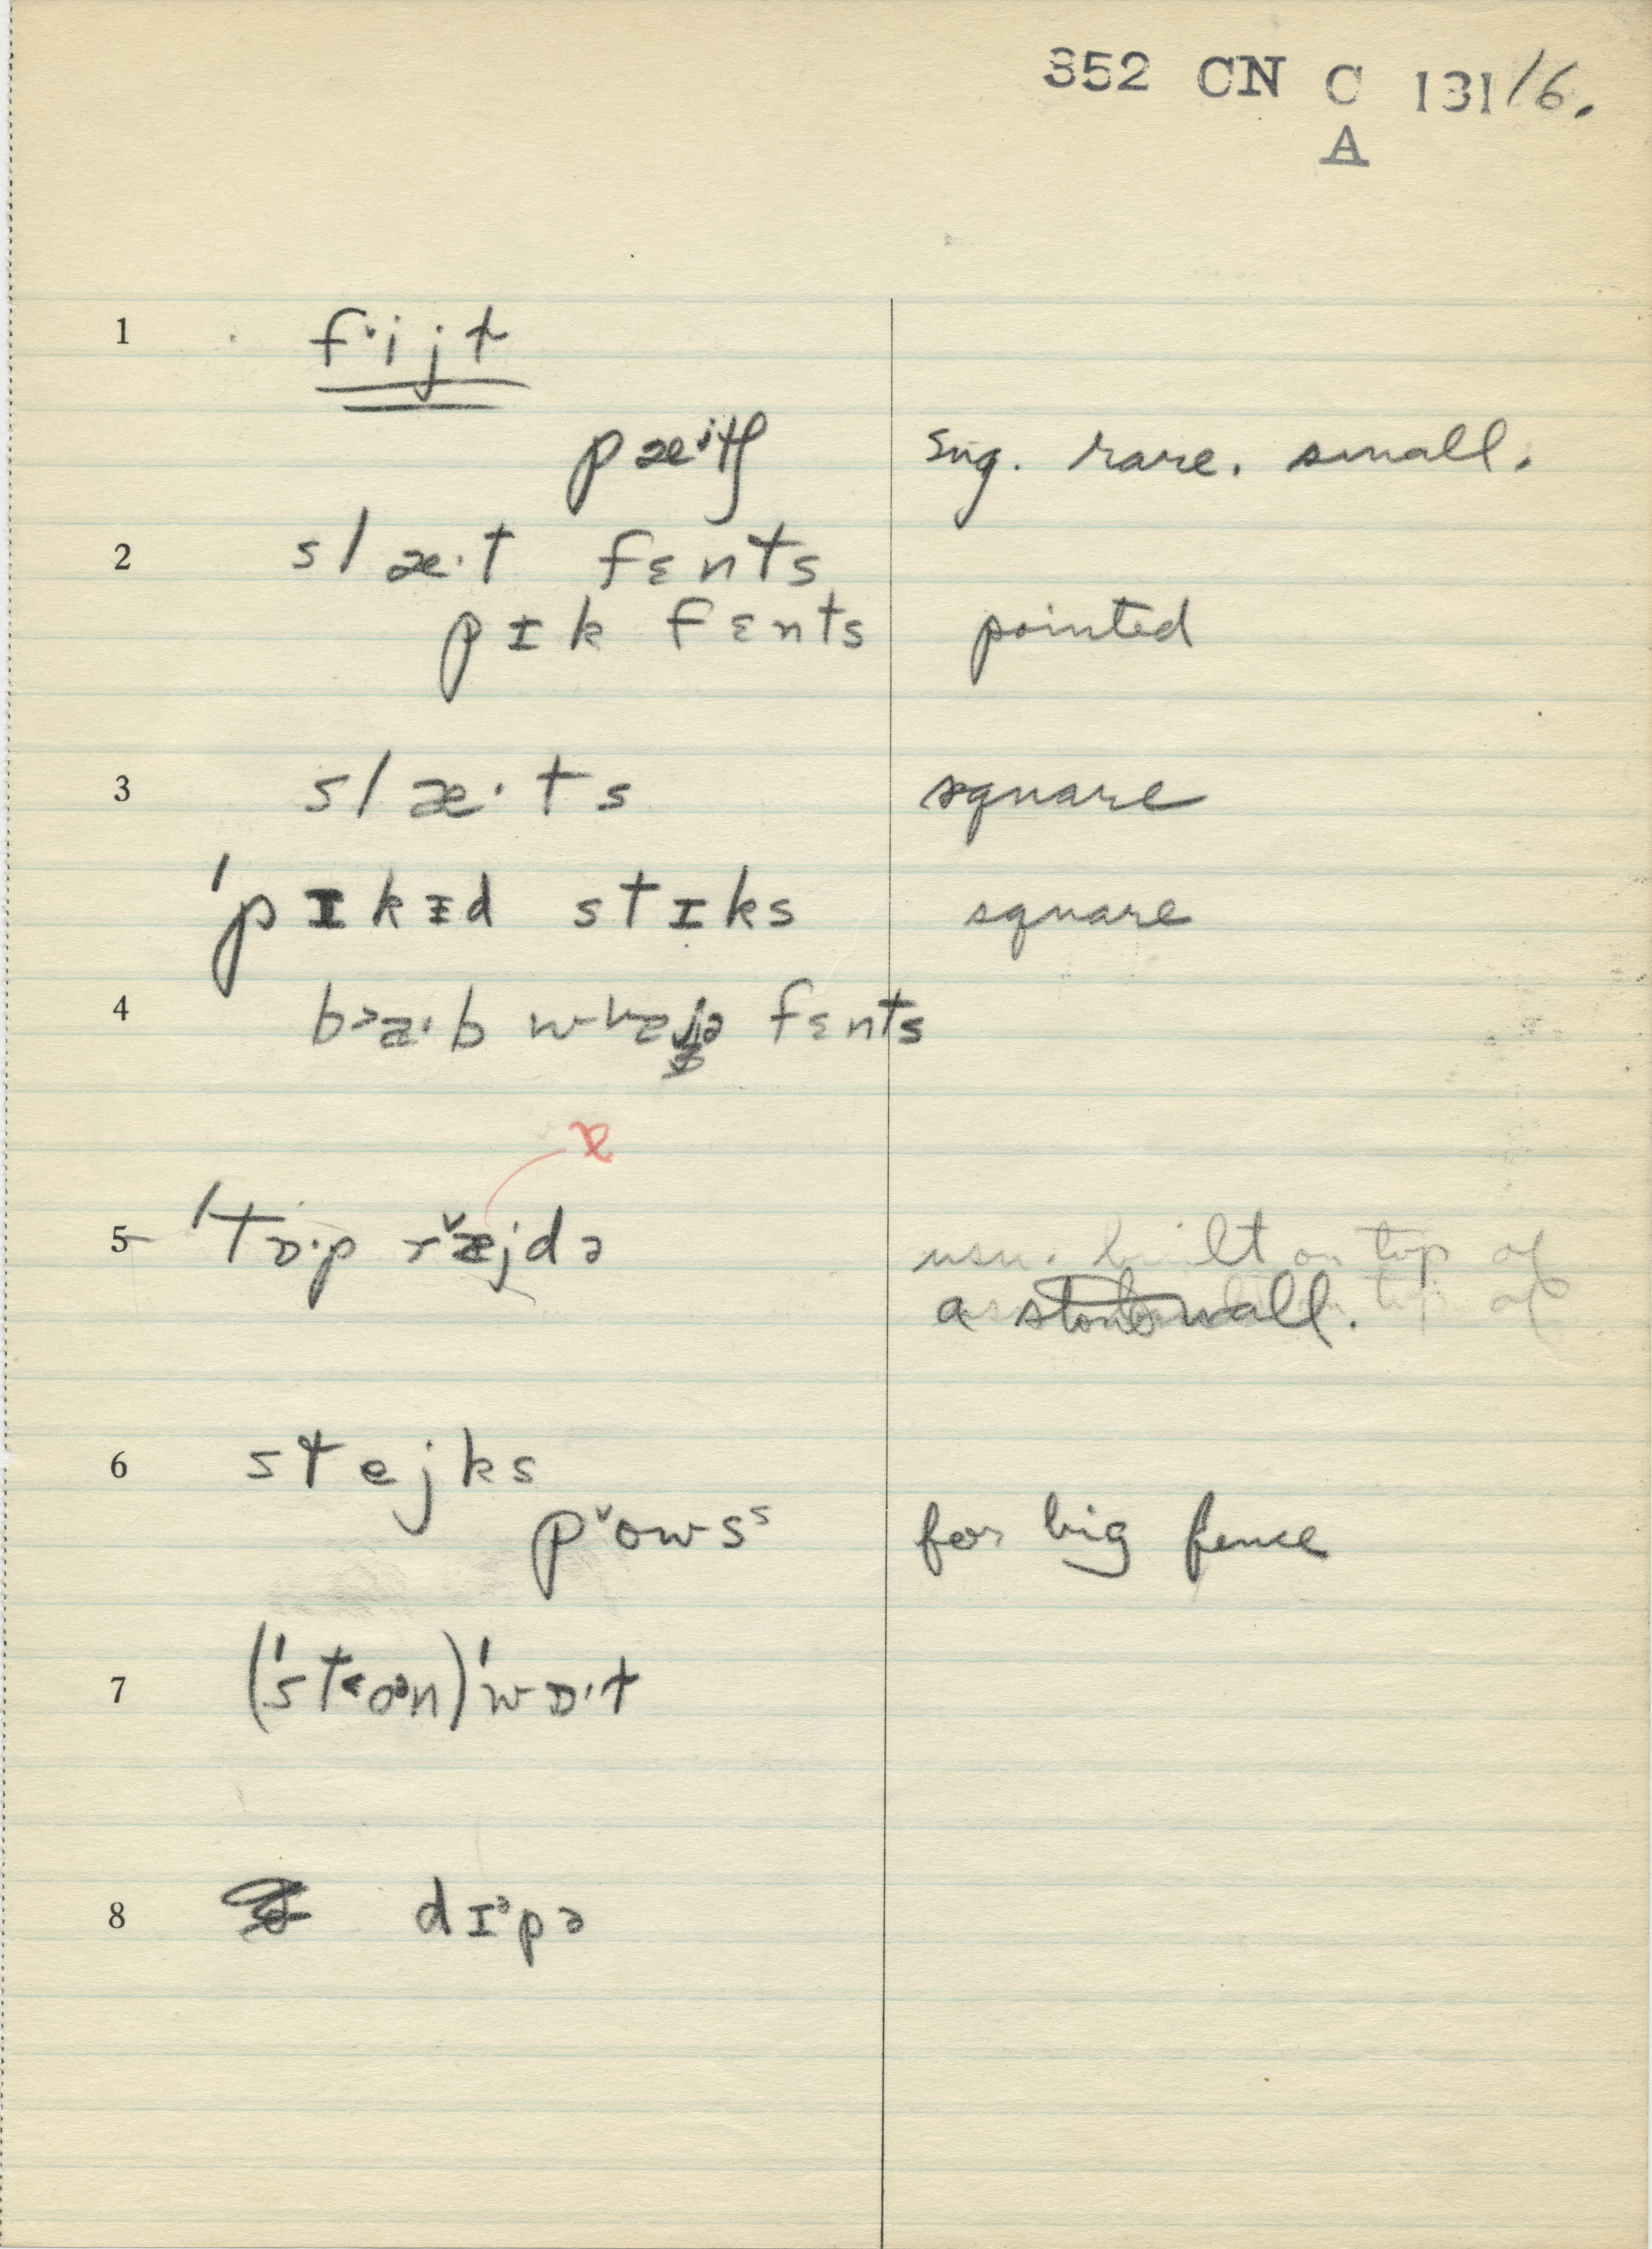 352 CN C 131/6.
A
1 fˑijt
pæʲtʃ sug. rare. small.
2 slæˑt fɛnts
pɪk fɛnts pointed
3 slæˑts square
ˈpɪkɪd stɪks square
4 fɛnts
ɒ
5 ˈtɒˑp r̆æjdə usu. built on top of
a wall.
6 stejks
pˇowsˢ for big fence
7 (ˈst˂oᵊn)ˈwɒˑt
8 dɪᵊpə